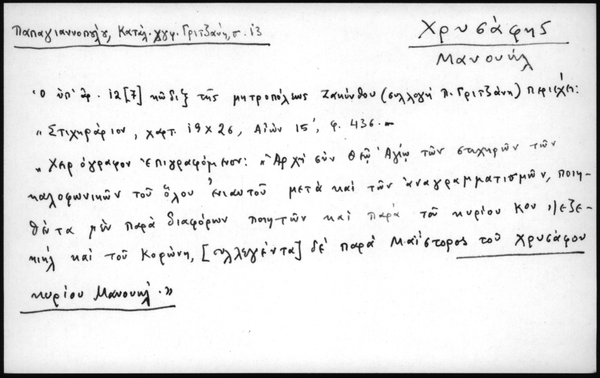 Παπαγιαννοπούλου, Κατάλ. χγφ. Γριτζάνη, σ. 13
Χρυσάφης
Μανουήλ
Ὁ ὑπ' ἀρ. 12[7] κῶδιξ τῆς μητροπόλεως Ζακύνθου (συλλογὴ Π. Γριτζάνη) περιέχει:
"Στιχηράριον, χαρτ. 19 x 26, Αἰών 15', φ. 436.—
"Χειρόγραφον ἐπιγραφόμενον: "Ἀρχὴ σὺν Θεῷ Ἁγίῳ τῶν στιχηρῶν τῶν
καλοφωνικῶν τοῦ ὅλου ἐνιαυτοῦ μετὰ καὶ τῶν ἀναγραμματισμῶν, ποιη-
θέντα μὲν παρὰ διαφόρων ποιητῶν καὶ παρὰ τοῦ κυρίου Κου
καὶ τοῦ Κορώνη, [συλλεγέντα] δὲ παρὰ Μαΐστορος τοῦ Χρυσάφου
κυρίου Μανουήλ."